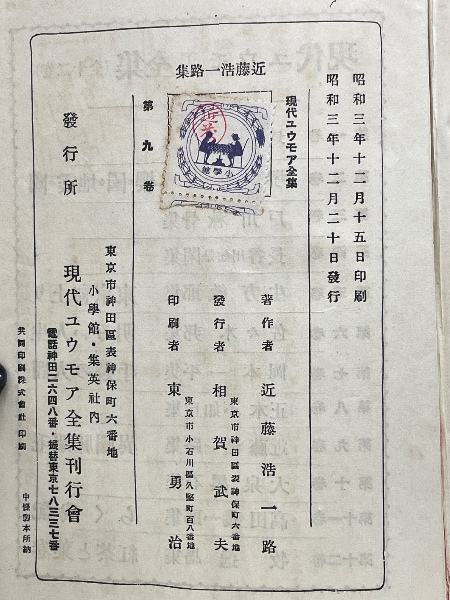 昭和三年十二月十五日印刷
昭和三年十二月二十日發行
現代ユウモア全集
近藤浩一路集
第九卷
小學館
著作者 近藤浩一路
東京市神田區表神保町六番地
發行者 相賀武夫
東京市小石川區久堅町百八番地
印刷者 東勇治
發行所
東京市神田區表神保町六番地
小學館・集英社內
現代ユウモア全集刊行會
電話神田二六四八番・振替東京七八三三七番
共同印刷株式會社印刷
中條製本所納